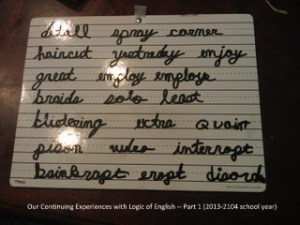 detall spray corner
haircut yestreday enjoy
great employ employs
braids solo least
blistering extra Quaint
pison video interropt
bainkropt eropt disords
Our Continuing Experiences with Logic of English -- Part 1 (2013-2104 school year)